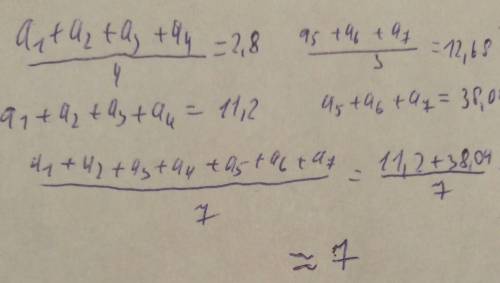 (a₁+a₂+a₃+a₄)/4 = 2,8   (a₅+a₆+a₇)/3 = 12,68
a₁+a₂+a₃+a₄ = 11,2   a₅+a₆+a₇ = 38,0
(a₁+a₂+a₃+a₄+a₅+a₆+a₇)/7 = (11,2+38,04)/7
≈ 7